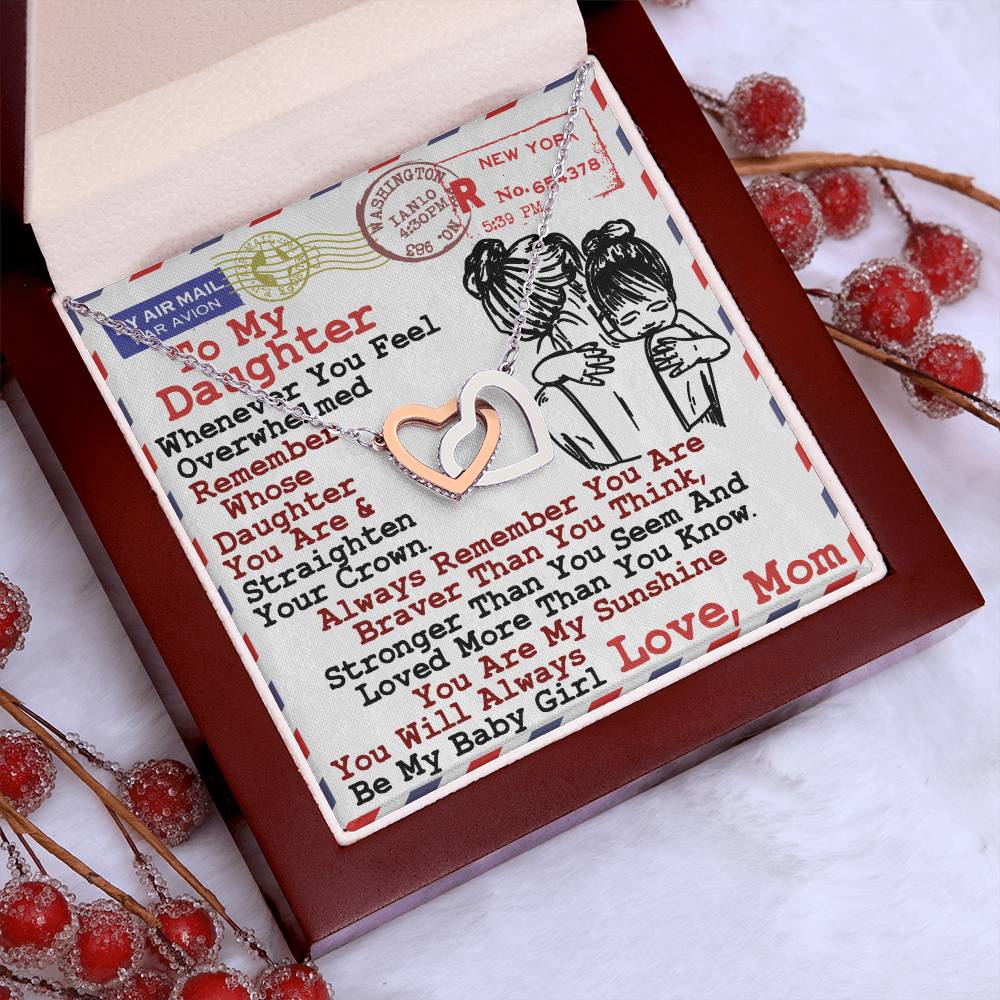 NEW YORK
R No. 654378
5:39 PM
WASHINGTON
IAN10
4:30PM
NO. 963
BY AIR MAIL
PAR AVION
To My
Daughter
Whenever You Feel
Overwhelmed
Remember
Whose
Daughter
You Are &
Straighten
Your Crown.
Always Remember You Are
Braver Than You Think,
Stronger Than You Seem And
Loved More Than You Know.
You Are My Sunshine
You Will Always
Be My Baby Girl
Love, Mom